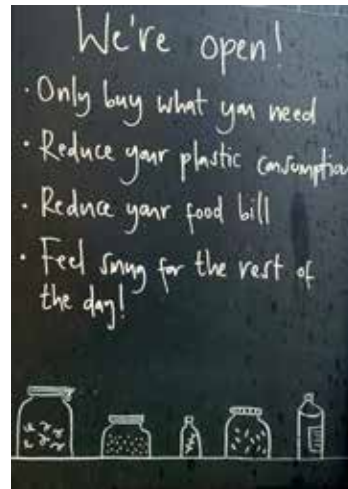 We're open!
· Only buy what you need
· Reduce your plastic consumption
· Reduce your food bill
· Feel smug for the rest of
the day!